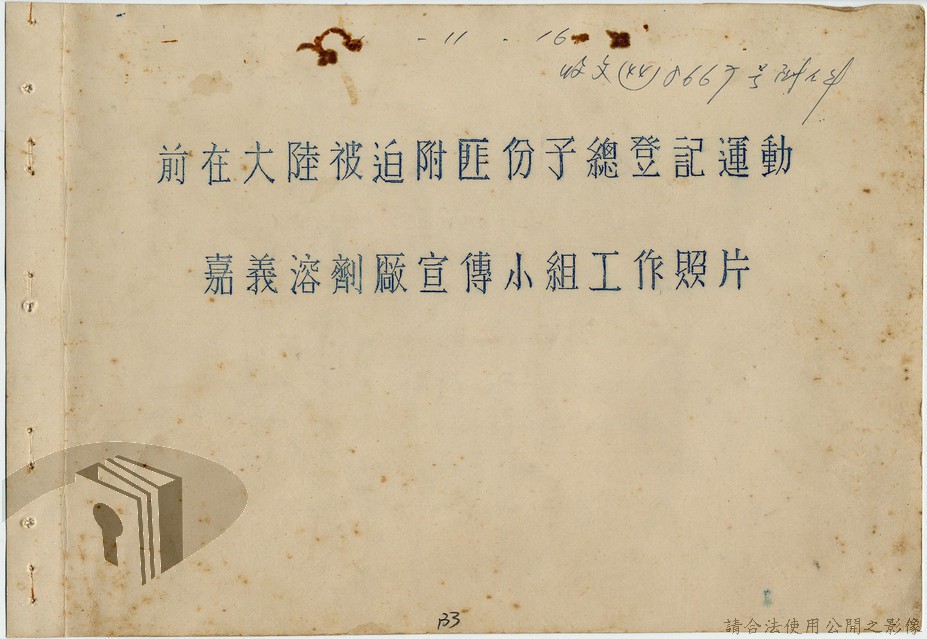 - 11 - 16
收文(44)8667号附件
前在大陸被迫附匪份子總登記運動
嘉義溶劑厰宣傳小組工作照片
133
請合法使用公開之影像